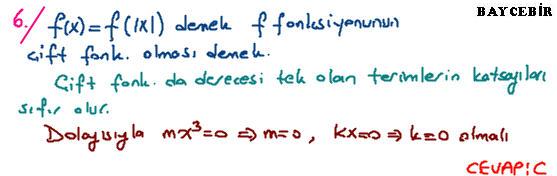 BAYCEBİR
6./ f(x)=f(|x|) demek f fonksiyonunun
çift fonk. olması demek.
Çift fonk. da derecesi tek olan terimlerin katsayıları
sıfır olur.
Dolayısıyla mx³=0 ⇒ m=0, kx=0 ⇒ k=0 olmalı
CEVAP:C